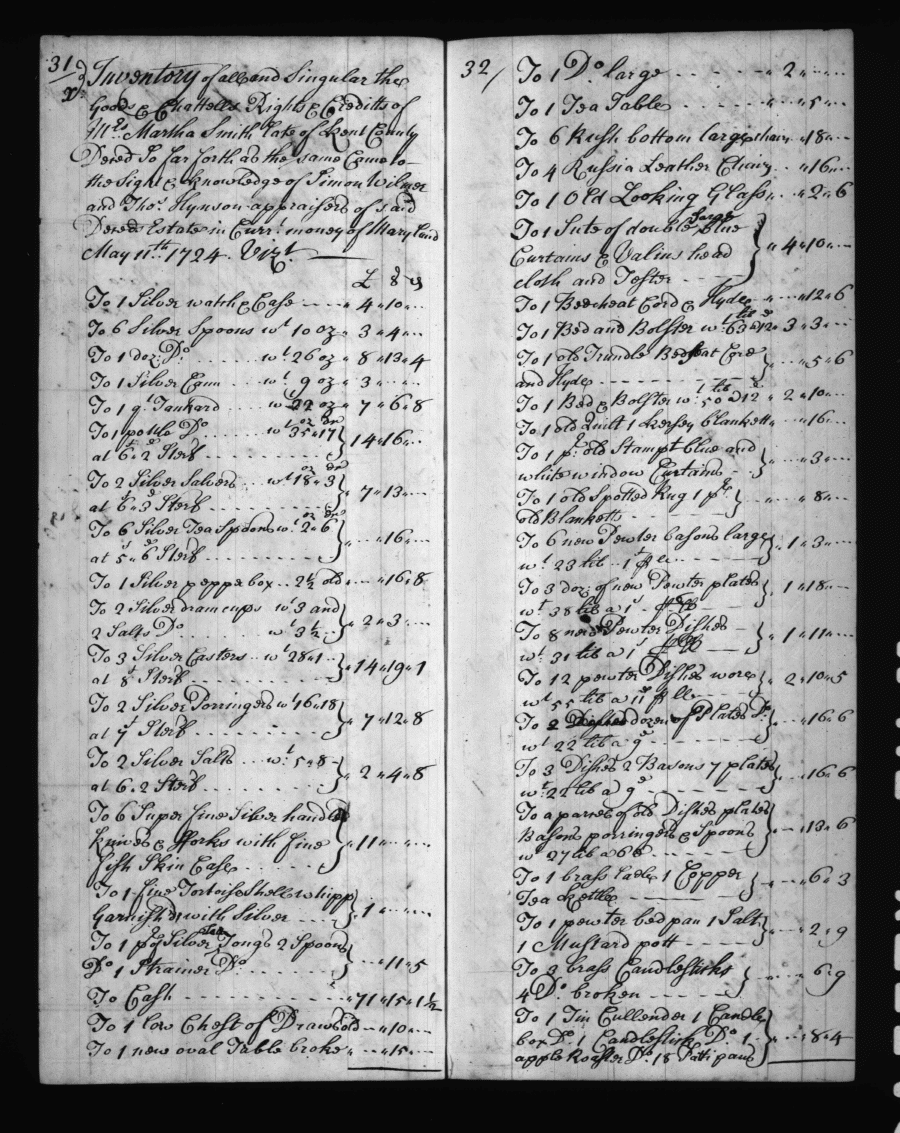 31
Inventory of all and Singular the
Goods & Chattells Rights & Creditts of
Mrs. Martha Smith late of Kent County
Deced So far forth as the same Came to
the Sight & knowledge of Simon Wilmer
and Thos. Hynson appraisers of said
Deced Estate in Currt. money of Maryland
May 11th. 1724. Vizt.
£ S D
To 1 Silver watch & Case ---- 4 " 10 "
To 6 Silver Spoons wt 10 oz " 3 " 4 "
To 1 doz: Do. ...... wt 26 oz " 8 " 13 " 4
To 1 Silver Cann ... wt. 9 oz " 3 "
To 1 qt. Tankard ... wt 22 oz " 7 " 6 " 8
To 1 pottle Do ... wt 35 oz " 17 dr
at 6s. 2d Sterg ...... 14 " 16 "
To 2 Silver Salvers ... wt 18 oz " 3 dr
at 6s " 3d Sterg ...... 7 " 13 "
To 6 Silver Tea Spoons wt. 2 oz " 6 dr
at 5s " 6d Sterg ...... " 16 "
To 1 Silver peppebox .. 2½ old " 16 " 8
To 2 Silver dram cups wt 3 and
2 Salts Do ...... wt 3½ .. 2 " 3 "
To 3 Silver Casters .. wt 28 " 1
at 8s Sterg ...... 14 " 9 " 1
To 2 Silver Porringers wt 16 " 18
at 7s Sterg ...... 7 " 12 " 8
To 2 Silver Salts .. wt. 5 " 8
at 6 " 2 Sterg ...... 2 " 4 " 8
To 6 Super fine Silver handle
knives & fforks with fine " 11 "
Fish Skin Case ......
To 1 fine Tortoiseshell whipp
Garnish'd with Silver ... 1 "
To 1 pr Silver Tea Tongs 2 Spoons
Do 1 Strainer Do ...... " 11 " 5
To Cash ---------- 71 " 15 " 1½
To 1 low Chest of Draws old -- " 10 "
To 1 new oval Table broke " " 15 "
32/
To 1 Do. large ---- " 2 "
To 1 Tea Table ------ " 5 "
To 6 Rush bottom large chairs " 18 "
To 4 Russia Leather Chairs " 16 "
To 1 Old Looking Glass " 2 " 6
To 1 Sute of double large blue
Curtains & Valins head " 4 " 10 "
cloth and Tester -----
To 1 Bedcheat Cord & Hyde " 12 " 6
To 1 Bed and Bolster wt. 63 lib a 12d 3 " 3 "
To 1 old Trundle Bedsteat Cord
and Hyde -------- " 5 " 6
To 1 Bed & Bolster wt. 50 lib a 12d 2 " 10 "
To 1 old Quilt 1 Kersey blankett " 16 "
To 1 pr. old Stampt blue and
white window Curtains -- " 3 "
To 1 old Spotted Rug 1 pr
old Blanketts ------ " 8 "
To 6 new Pewter basons large
wt. 23 lib .. 1s ⅌ li " 1 " 3 "
To 3 doz: of new Pewter plates
wt 38 lib a 1s ⅌ 1 " 18 "
To 8 new Pewter Dishes
wt. 31 lib a 1s ⅌ 1 " 11 "
To 12 pewter Dishes wore
wt 55 lib a 11d ⅌ li 2 " 10 " 5
To 2 dozen of Plates Do.
wt 22 lib a 9d ---- " 16 " 6
To 3 Dishes 2 Basons 7 plates
wt. 22 lib a 9d ---- " 16 " 6
To a parsel of old Dishes plates
Basons porringers & Spoons " 13 " 6
wt 27 lib a 6d ---
To 1 brass Ladle 1 Copper
Tea Kettle ------ " 6 " 3
To 1 pewter bed pan 1 Salt
1 Mustard pott ----- " 2 " 9
To 3 brass Candlesticks
4 Do. broken ----- " 6 " 9
To 1 Tin Cullender 1 Candle
box Do. 1 Candlestick Do. 1 " 8 " 4
apple Roaster Do. 18 Patti pans